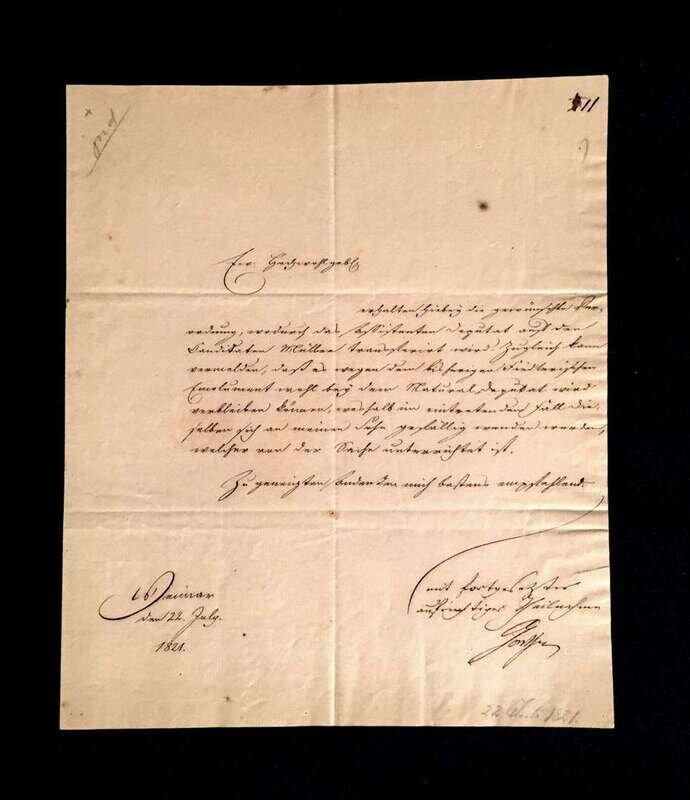 11
Ew. Hochwohlgeb.
erhalten hiebey die gewünschte Ver-
ordnung, wodurch das Assistenten Deputat auf den
Candidaten Müller transferirt wird. Zugleich kann
vermelden, daß es wegen dem bisherigen
Emolument wohl bey dem Natural Deputat wird
verbleiben können, weshalb im eintretenden Fall die-
selben sich an meinen Sohn gefällig wenden werden,
welcher von der Sache unterrichtet ist.
Zu geneigtem Andenken mich bestens empfehlend.
mit fortgesetzter
aufrichtiger Theilnahme
Goethe
Weimar
den 22. July.
1821.
22 Juli 1821.